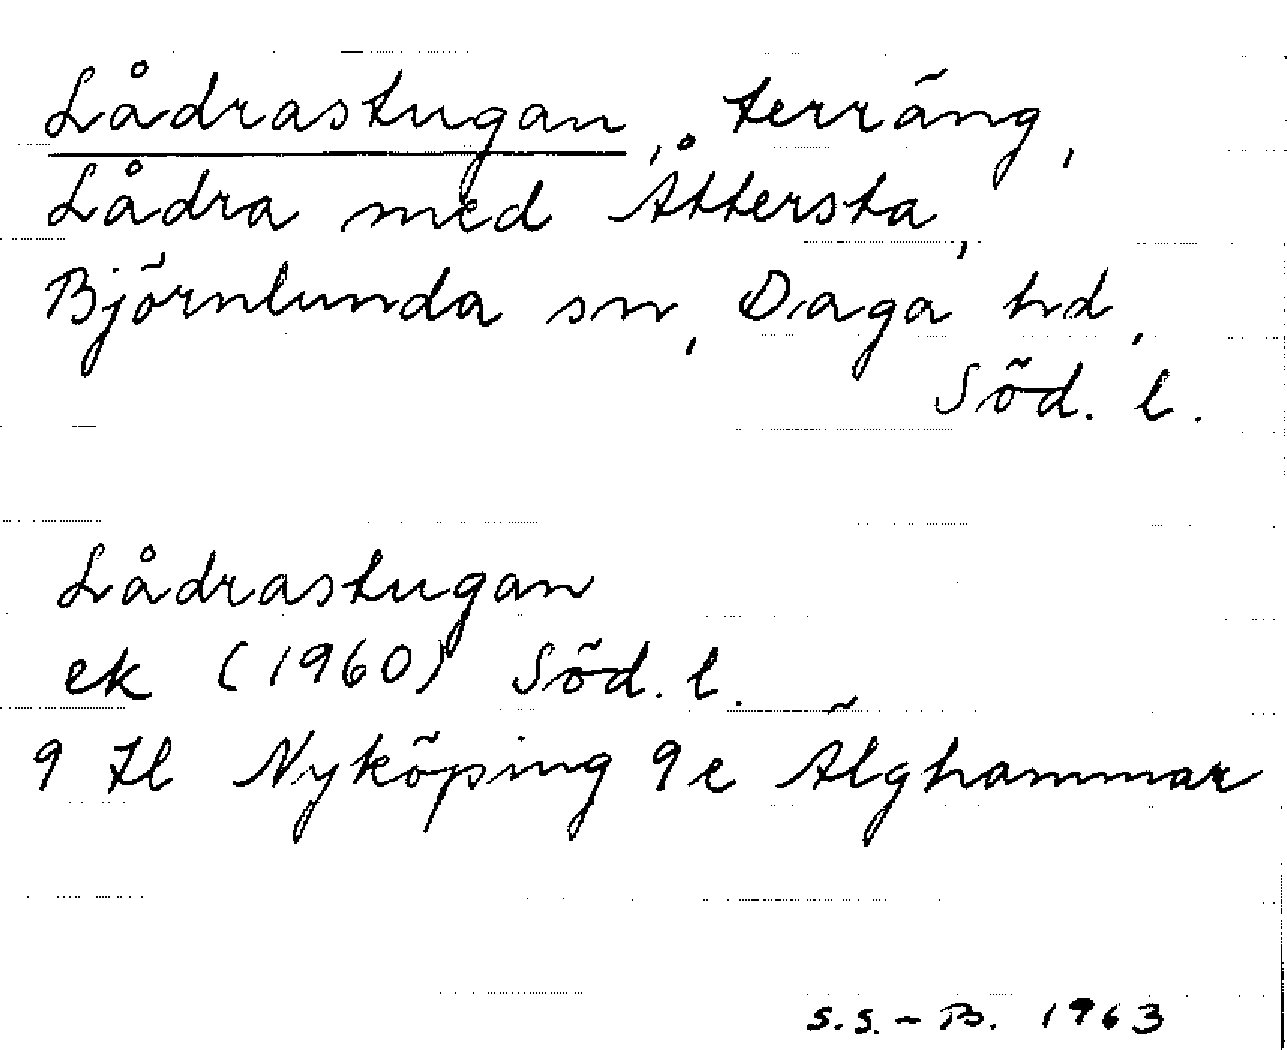 Lådrastugan, terräng,
Lådra med Åttersta,
Björnlunda sn, Daga hd,
Söd. l.
Lådrastugan
ek (1960) Söd. l.
9 Hl Nyköping 9e Älghammar
S.S.-B. 1963